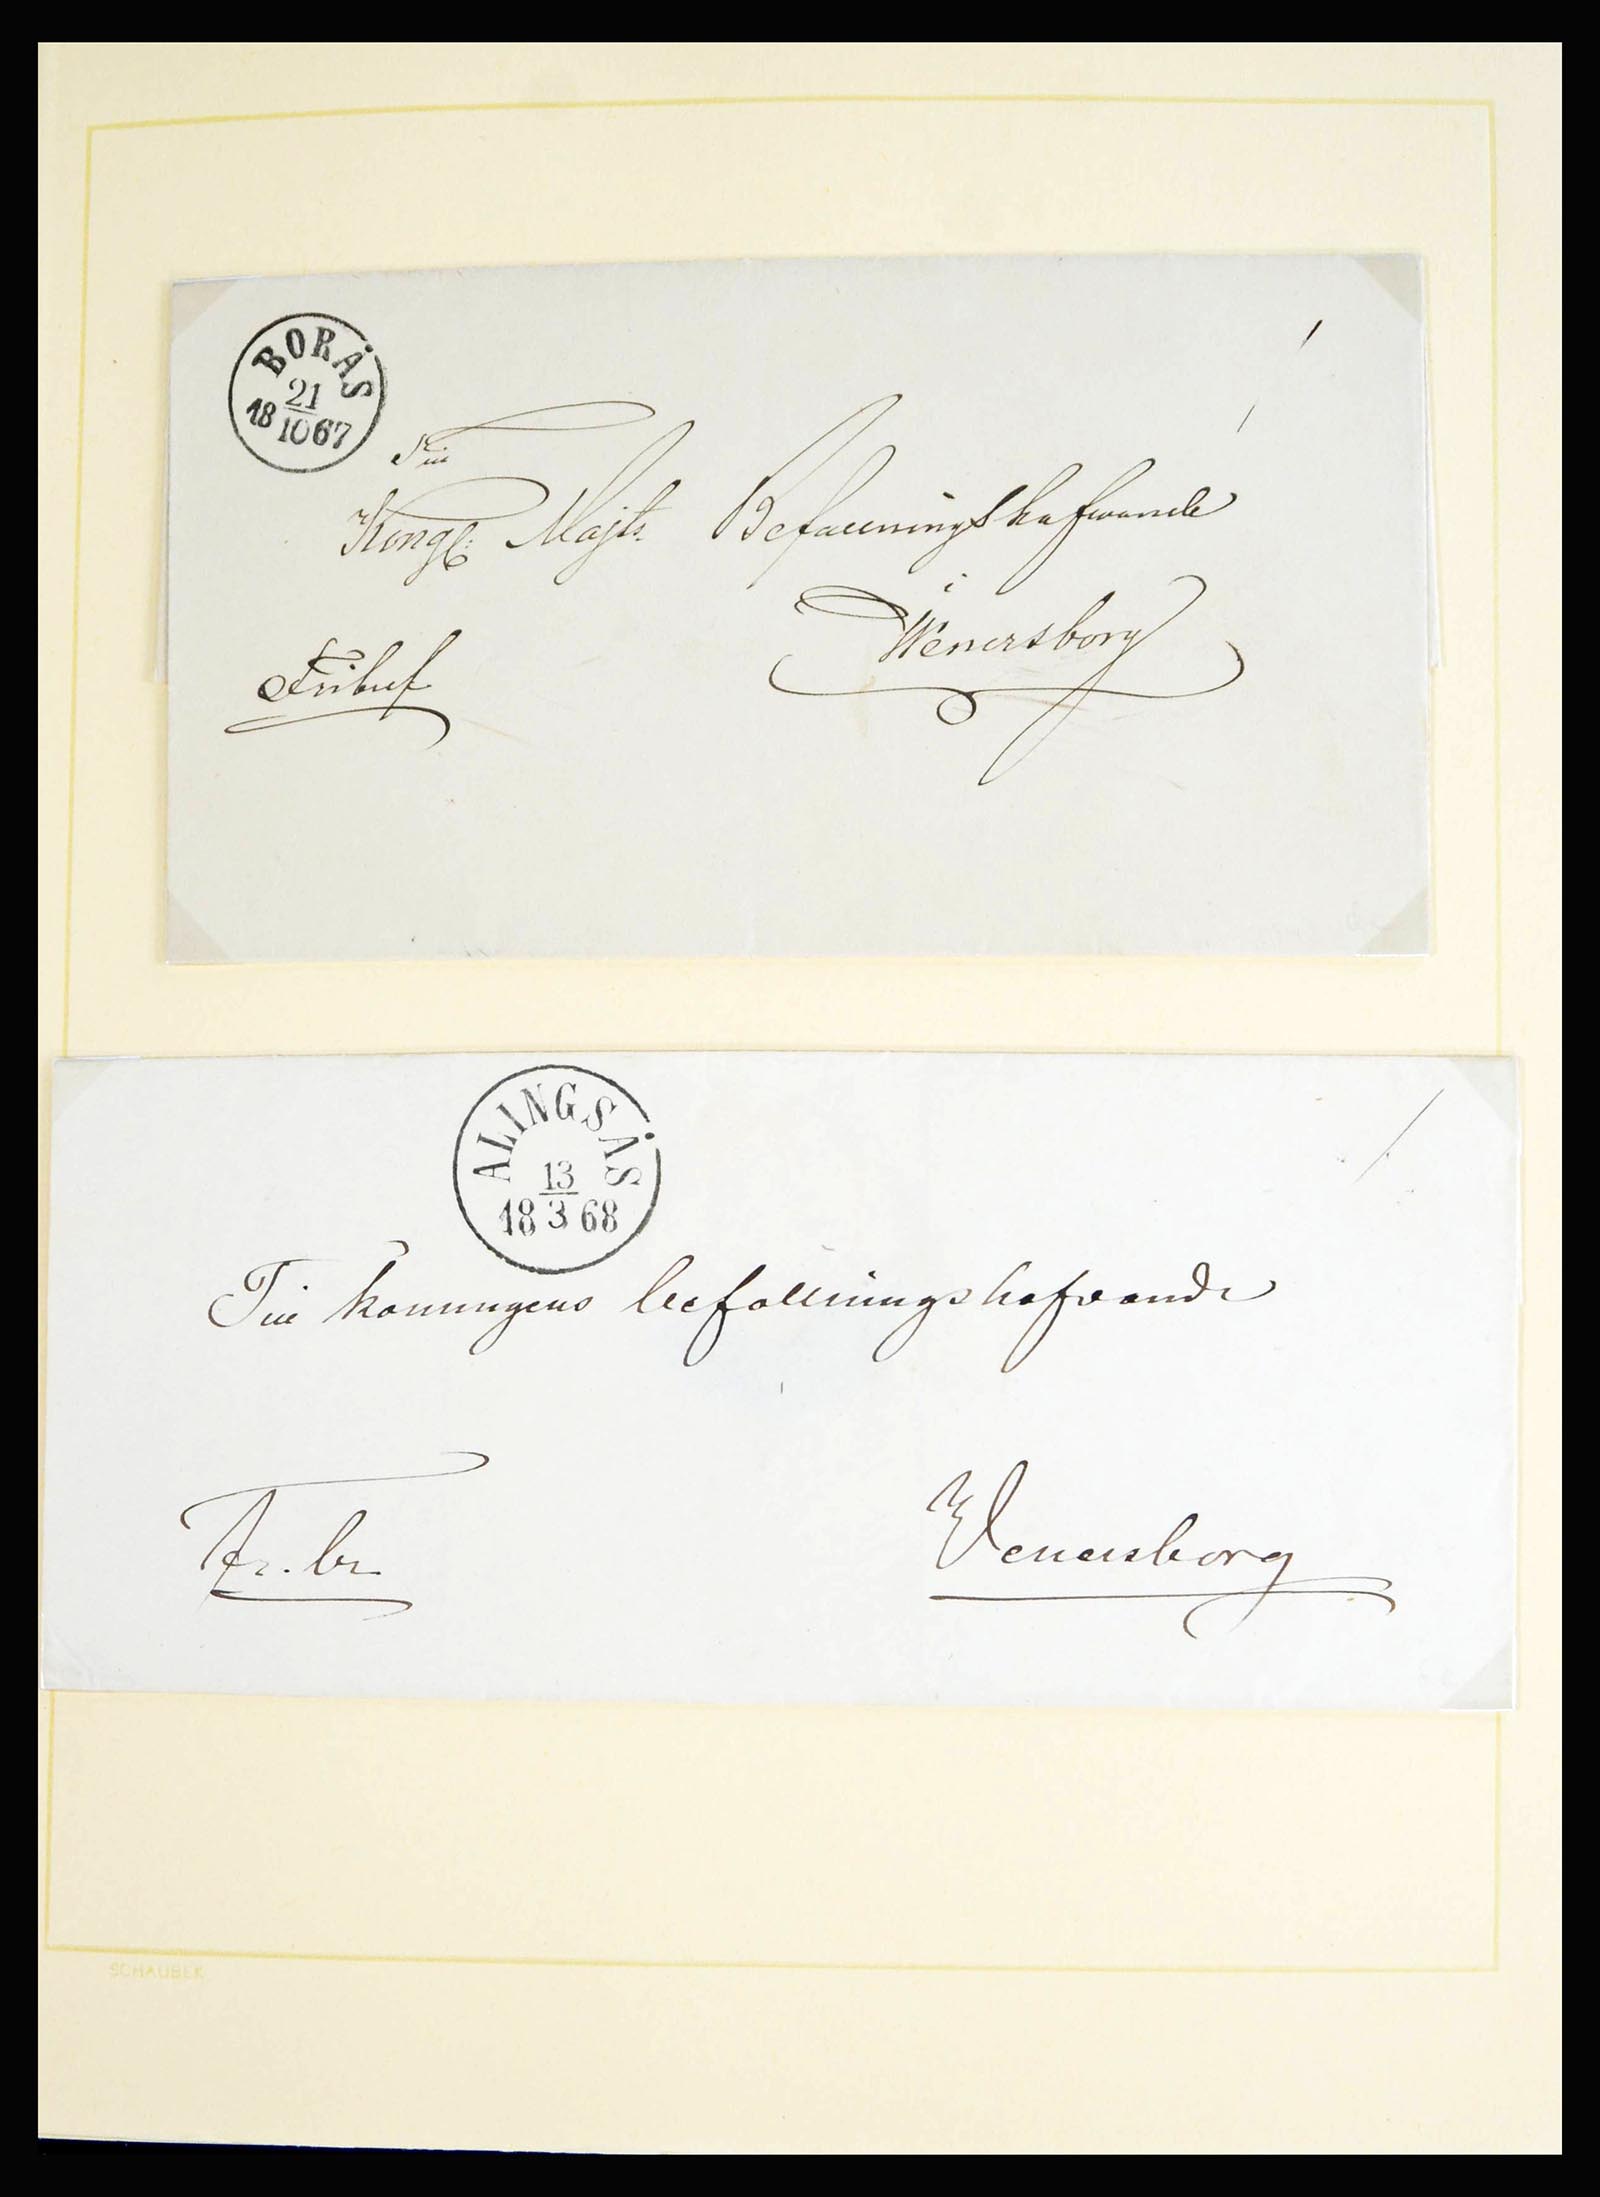 BORÅS
21
18 10 67
Till
Kongl: Majts. Befallningshafwande
i
Wenersborg
Fribref
ALINGSÅS
13
18 3 68
Till konungens befallningshafvande
Fr. br.
Venersborg
SCHAUBEK